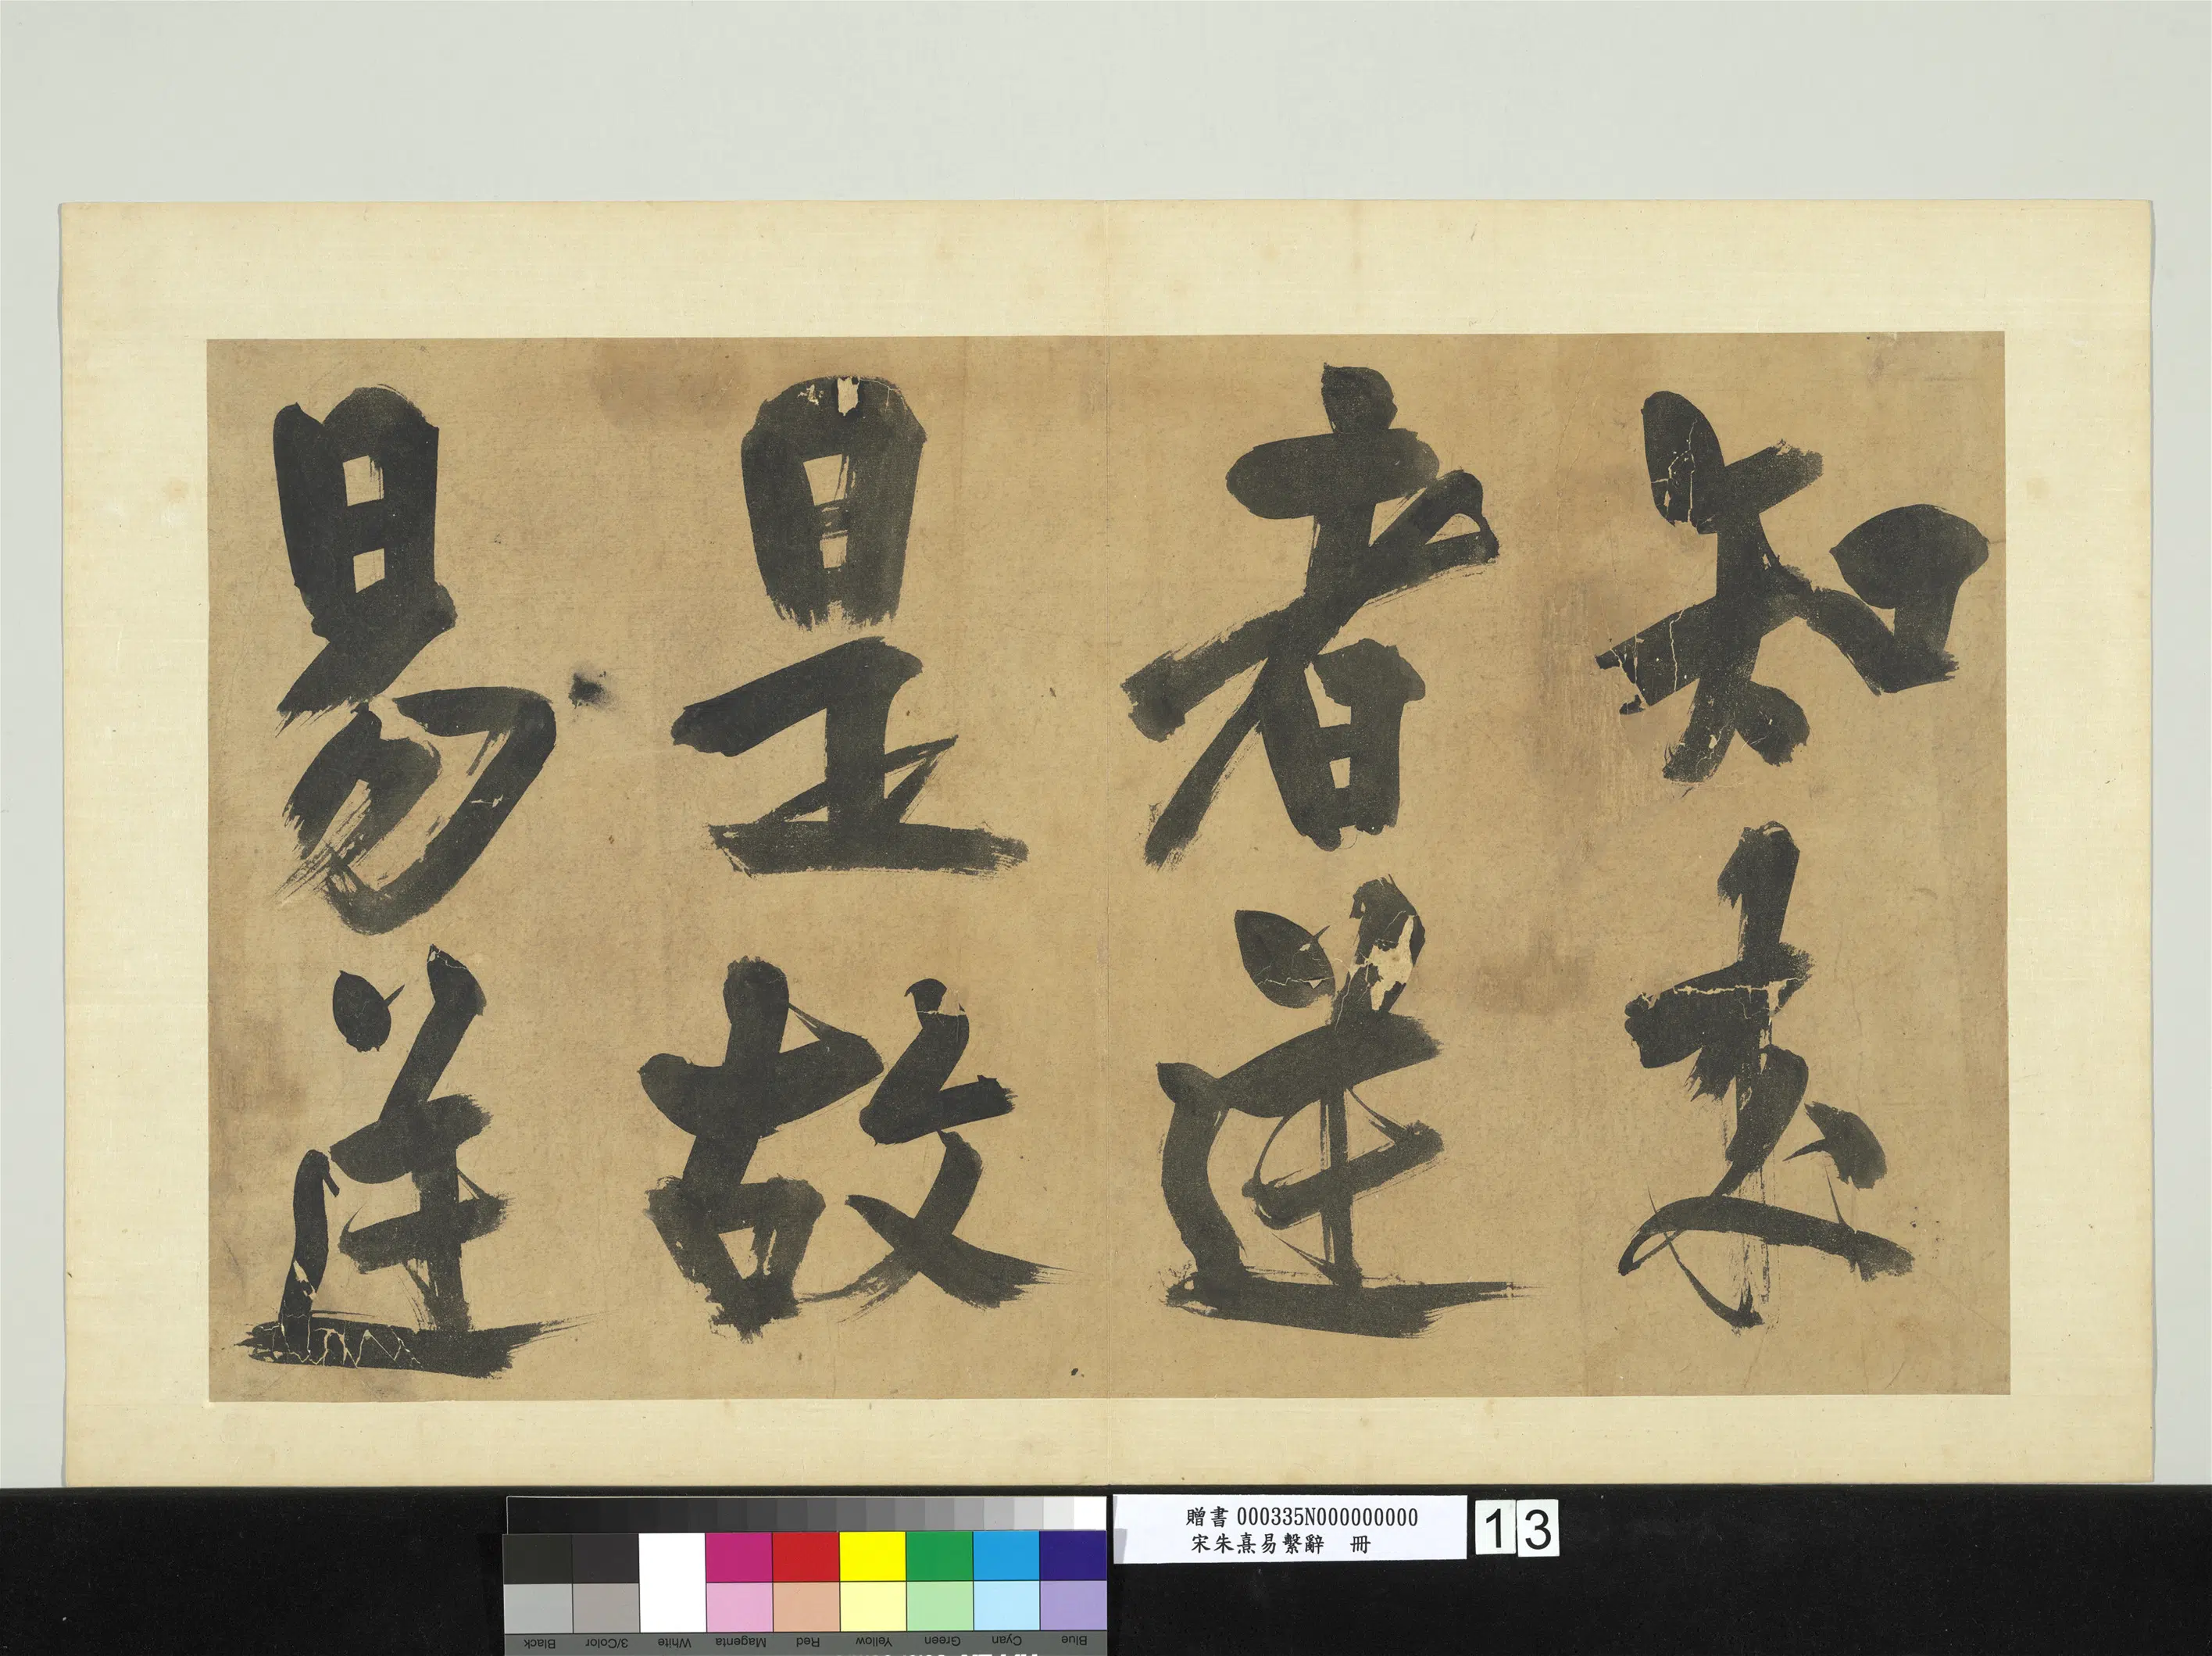 知来
者逆
是故
易逆
贈書 000335N000000000
宋朱熹易繫辭 冊
13
Black
3/Color
White
Magenta
Red
Yellow
Green
Cyan
Blue